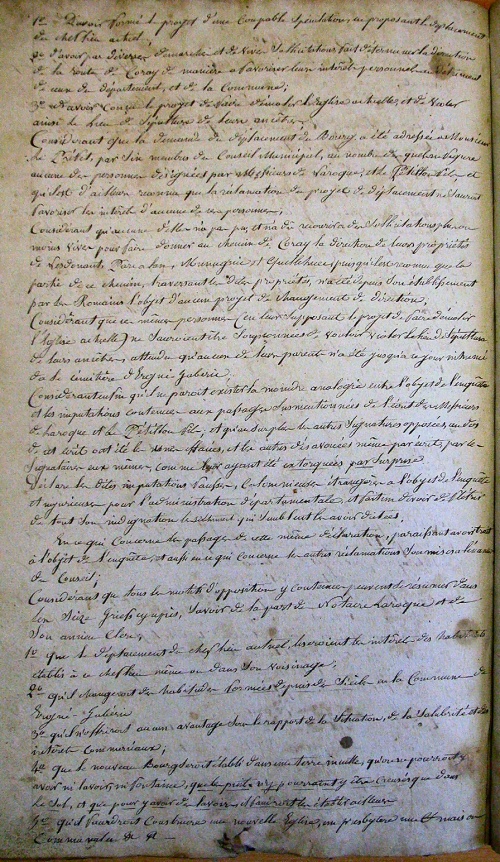 1º D'avoir formé le projet d'une Coupable Spéculation, en proposant le déplacement
du chef lieu actuel;
2º d'avoir par diverses démarches et de vives Sollicitations fait déterminer la direction
de la route de Coray de manière à favoriser leurs intérêts personnels au détriment
de ceux du département, et de la Commune;
3º et d'avoir Conçu le projet de faire démolir l'Eglise actuelle, et de violer
ainsi le lieu de Sépulture de leurs ancêtres.
Considérant que la demande du déplacement du Bourg a été adressée à Monsieur
le Préfet, par Six membres du Conseil Municipal, au nombre desquels ne figure
aucune des personnes désignées par Messieurs de Laroque, et le Pétillon fils et
qu'il est d'ailleurs reconnu que la réclamation du projet de déplacement ne saurait
favoriser les intérêts d'aucune de ces personnes;
Considérant qu'aucune d'elles n'a pas pu, et n'a dû recourir à des Sollicitations plus ou
moins vives pour faire donner au chemin de Coray la direction de leurs propriétés
de puisqu'il est reconnu que la
partie de ce chemin, traversant les dites propriétés, n'a été depuis son établissement
par les Romains l'objet d'aucun projet de changement de direction,
Considérant que ces mêmes personnes (en leur Supposant le projet de faire démolir
l'Eglise actuelle) ne sauraient être Soupçonnées de vouloir violer le lieu de Sépulture
de leurs ancêtres, attendu qu'aucun de leurs parents n'a été jusqu'à ce jour inhumé
dans le cimetière d'Ergué-Gabéric.
Considérant enfin qu'il ne parait exister la moindre analogie entre l'objet de l'enquête
et les imputations contenues aux passages Susmentionnés de l'écrit de Messieurs
de Laroque et Le Pétillon fils, et qu'au surplus les autres Signatures apposées au dos
de cet écrit ont été les unes effacées, et les autres désavouées même par écrit, par les
Signataires eux mêmes, comme leur ayant été extorquées par Surprise.
Déclare les dites imputations fausses, Calomnieuses, étrangères à l'objet de l'enquête
et injurieuses pour l'administration départementale, et se fait un devoir de flétrir
de tout son indignation le Sentiment qui Semble les avoir dictées.
En ce qui Concerne les passages de cette même déclaration, paraissant avoir trait
à l'objet de l'enquête, et aussi en ce qui concerne les autres réclamations Soumises à l'examen
du Conseil;
Considérant que tous les motifs d'opposition y contenus peuvent se résumer dans
les Seize Griefs cy après, Savoir de la part du Notaire Laroque et de
Son ancien Clerc,
1º que le déplacement du chef lieu actuel, léseroient les intérêts des habitants
établis à ce chef lieu même ou dans Son voisinage,
2º qu'il changerait des habitudes formées depuis des Siècles en la Commune de
Ergué-Gabéric
3º qu'il n'offriroit aucun avantage Sous le rapport de la Situation, de la Salubrité et des
intérêts Commerciaux;
4º que le nouveau Bourg Seroit établi dans une terre inculte, qu'on ne pourroit y
avoir ni lavoir ni fontaine, que le puits n'y pourraient y être Creusés que dans
le Sol, et que pour y avoir de lavoirs il faudroit les établir ailleurs
5º qu'il faudroit Construire une nouvelle Eglise, un presbytère une maison
Commune &a &a